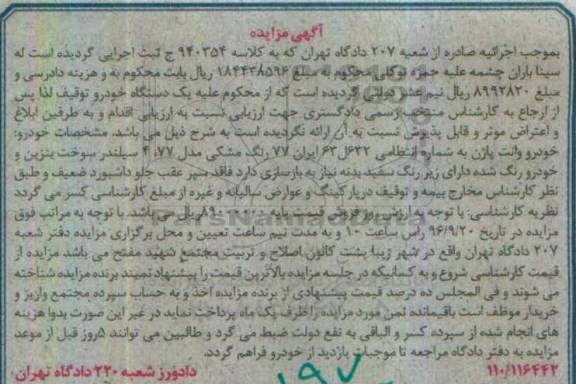 آگهی مزایده
بموجب اجرائیه صادره از شعبه ۲۰۷ دادگاه تهران که به کلاسه ۹۴۰۳۵۴ ج ثبت اجرایی گردیده است له
سینا باران چشمه علیه حمزه توکلی محکوم به مبلغ ۱۸۴۴۳۸۵۹۶ ریال بابت محکوم به و هزینه دادرسی و
مبلغ ۸۹۹۲۸۲۰ ریال نیم عشر دولتی گردیده است که از محکوم علیه یک دستگاه خودرو توقیف لذا پس
از ارجاع به کارشناس منتخب رسمی دادگستری جهت ارزیابی نسبت به ارزیابی اقدام و به طرفین ابلاغ
و اعتراض موثر و قابل پذیرش نسبت به آن ارائه نگردیده است به شرح ذیل می باشد. مشخصات خودرو:
خودرو وانت پاژن به شماره انتظامی ۶۳۲ل۶۳ ایران ۷۷ رنگ مشکی مدل ۷۷، ۴ سیلندر سوخت بنزین و
خودرو رنگ شده دارای زیر رنگ سفید بدنه نیاز به بازسازی دارد فاقد سپر عقب جلو داشبورد ضعیف و طبق
نظر کارشناس مخارج بیمه و توقیف در پارکینگ و عوارض سالیانه و غیره از مبلغ کارشناسی کسر می گردد
نظریه کارشناسی: با توجه به ارزش روز فروش قیمت پایه ریال می باشد. با توجه به مراتب فوق
مزایده در تاریخ ۹۶/۹/۲۰ راس ساعت ۱۰ و به مدت نیم ساعت تعیین و محل برگزاری مزایده دفتر شعبه
۲۰۷ دادگاه تهران واقع در شهر زیبا پشت کانون اصلاح و تربیت مجتمع شهید مفتح می باشد مزایده از
قیمت کارشناسی شروع و به کسانیکه در جلسه مزایده بالاترین قیمت را پیشنهاد نمیند برنده مزایده شناخته
می شوند و فی المجلس ده درصد قیمت پیشنهادی از برنده مزایده اخذ و به حساب سپرده مجتمع واریز و
خریدار موظف است باقیمانده ثمن مورد مزایده را ظرف یک ماه پرداخت نماید در غیر این صورت بدوا هزینه
های انجام شده از سپرده کسر و الباقی به نفع دولت ضبط می گرد و طالبین می توانند ۵روز قبل از موعد
مزایده به دفتر دادگاه مراجعه تا موجبات بازدید از خودرو فراهم گردد.
۱۱۰/۱۱۶۴۴۲ دادورز شعبه ۲۲۰ دادگاه تهران